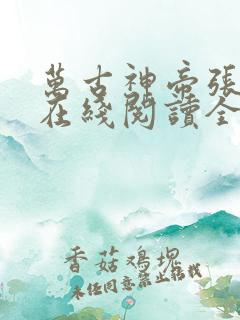 萬古神帝張
在綫閱讀全
香菇鸡堀
未经同意禁止转载